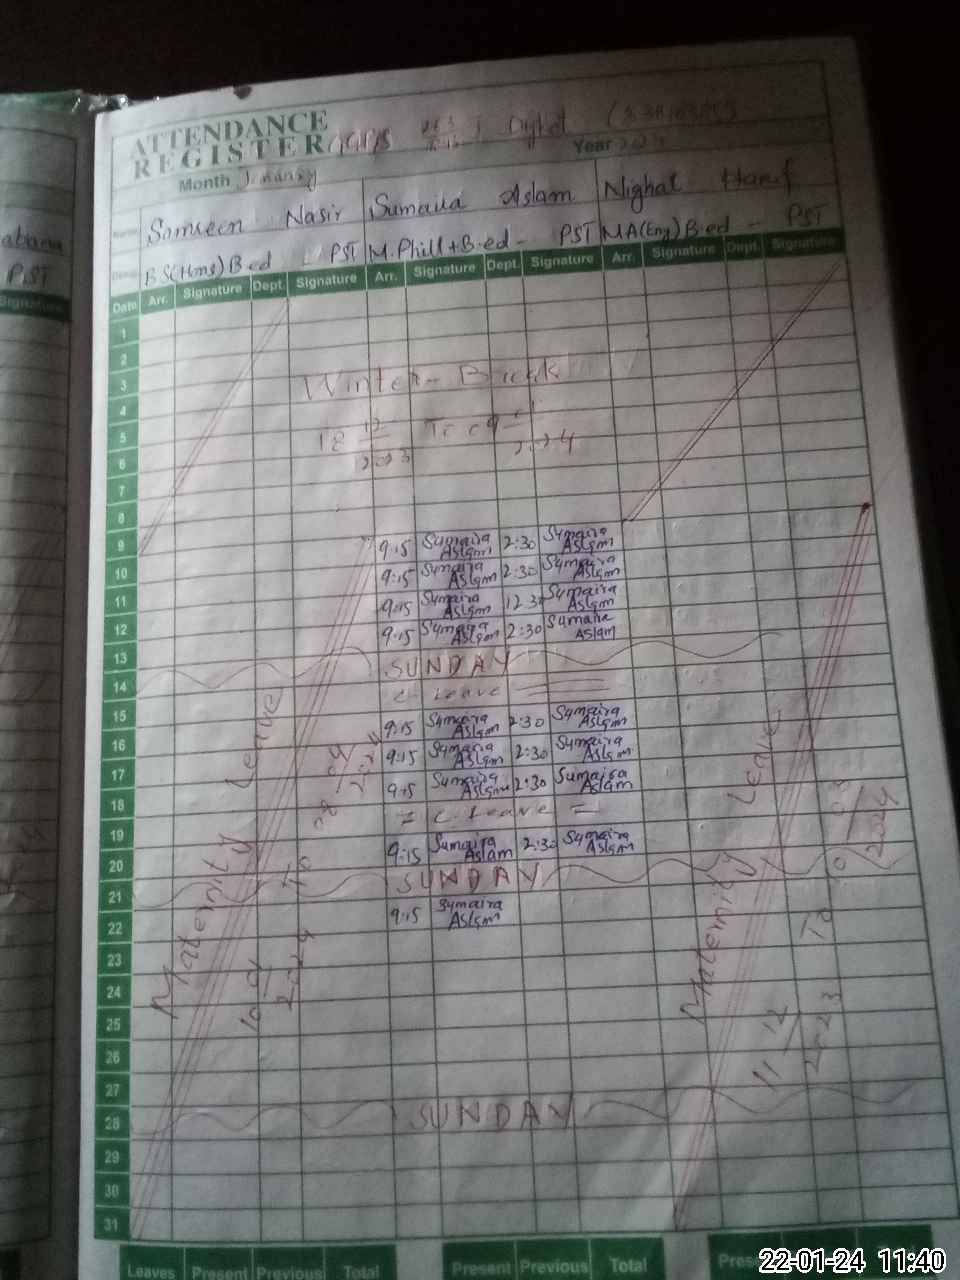 ATTENDANCE
REGISTER
Month January Year
Name Samreen Nasir Sumaira Aslam Nighat Hanif
BS(Hons) B-ed - PST M.Phill+B-ed - PST MA(Eng) B-ed - PST
PST
Date Arr. Signature Dept. Signature Arr. Signature Dept. Signature Arr. Signature Dept. Signature
1
2
3 Winter-Break
4
5 18 12 2023 To 09 2024
6
7
8
9 9:15 Sumaira Aslam 2:30 Sumaira Aslam
10 9:15 Sumaira Aslam 2:30 Sumaira Aslam
11 9:15 Sumaira Aslam 12:30 Sumaira Aslam
12 9:15 Sumaira Aslam 2:30 Sumaira Aslam
13 SUNDAY
14 C-Leave
15 9:15 Sumaira Aslam 2:30 Sumaira Aslam
16 9:15 Sumaira Aslam 2:30 Sumaira Aslam
17 9:15 Sumaira Aslam 2:30 Sumaira Aslam
18 = C-Leave =
19 9:15 Sumaira Aslam 2:30 Sumaira Aslam
20 SUNDAY
21
22 9:15 Sumaira Aslam
23
24
25
26
27
28 SUNDAY
29
30
31
Maternity Leave
10 01 2024 To 08 04 2024
Maternity Leave
11 12 2023 To 03 2024
Leaves Present Previous Total Present Previous Total Present Previous Total
22-01-24 11:40